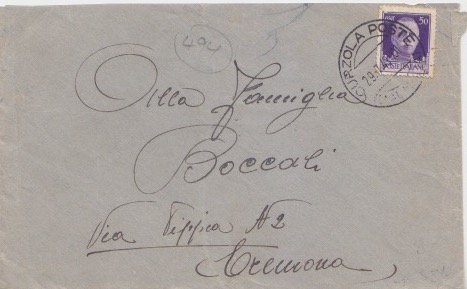 494
CURZOLA POSTE
50
POSTE ITALIANE
Alla Famiglia
Boccali
Via Tippica N 2
Cremona